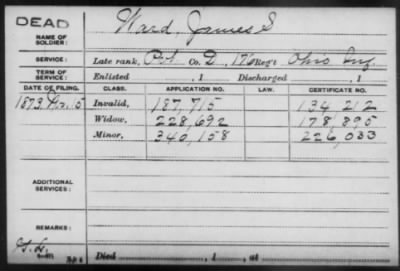 DEAD
NAME OF SOLDIER: Ward, James S
SERVICE: Late rank, Pvt Co. D, 176 Reg't Ohio Inf.
TERM OF SERVICE: Enlisted , 1 Discharged , 1
DATE OF FILING. CLASS. APPLICATION NO. LAW. CERTIFICATE NO.
1873, 15 Invalid, 187,715 134 212
Widow, 228,692 178,895
Minor, 340,158 226,033
ADDITIONAL SERVICES:
REMARKS:
Died , 1 , at